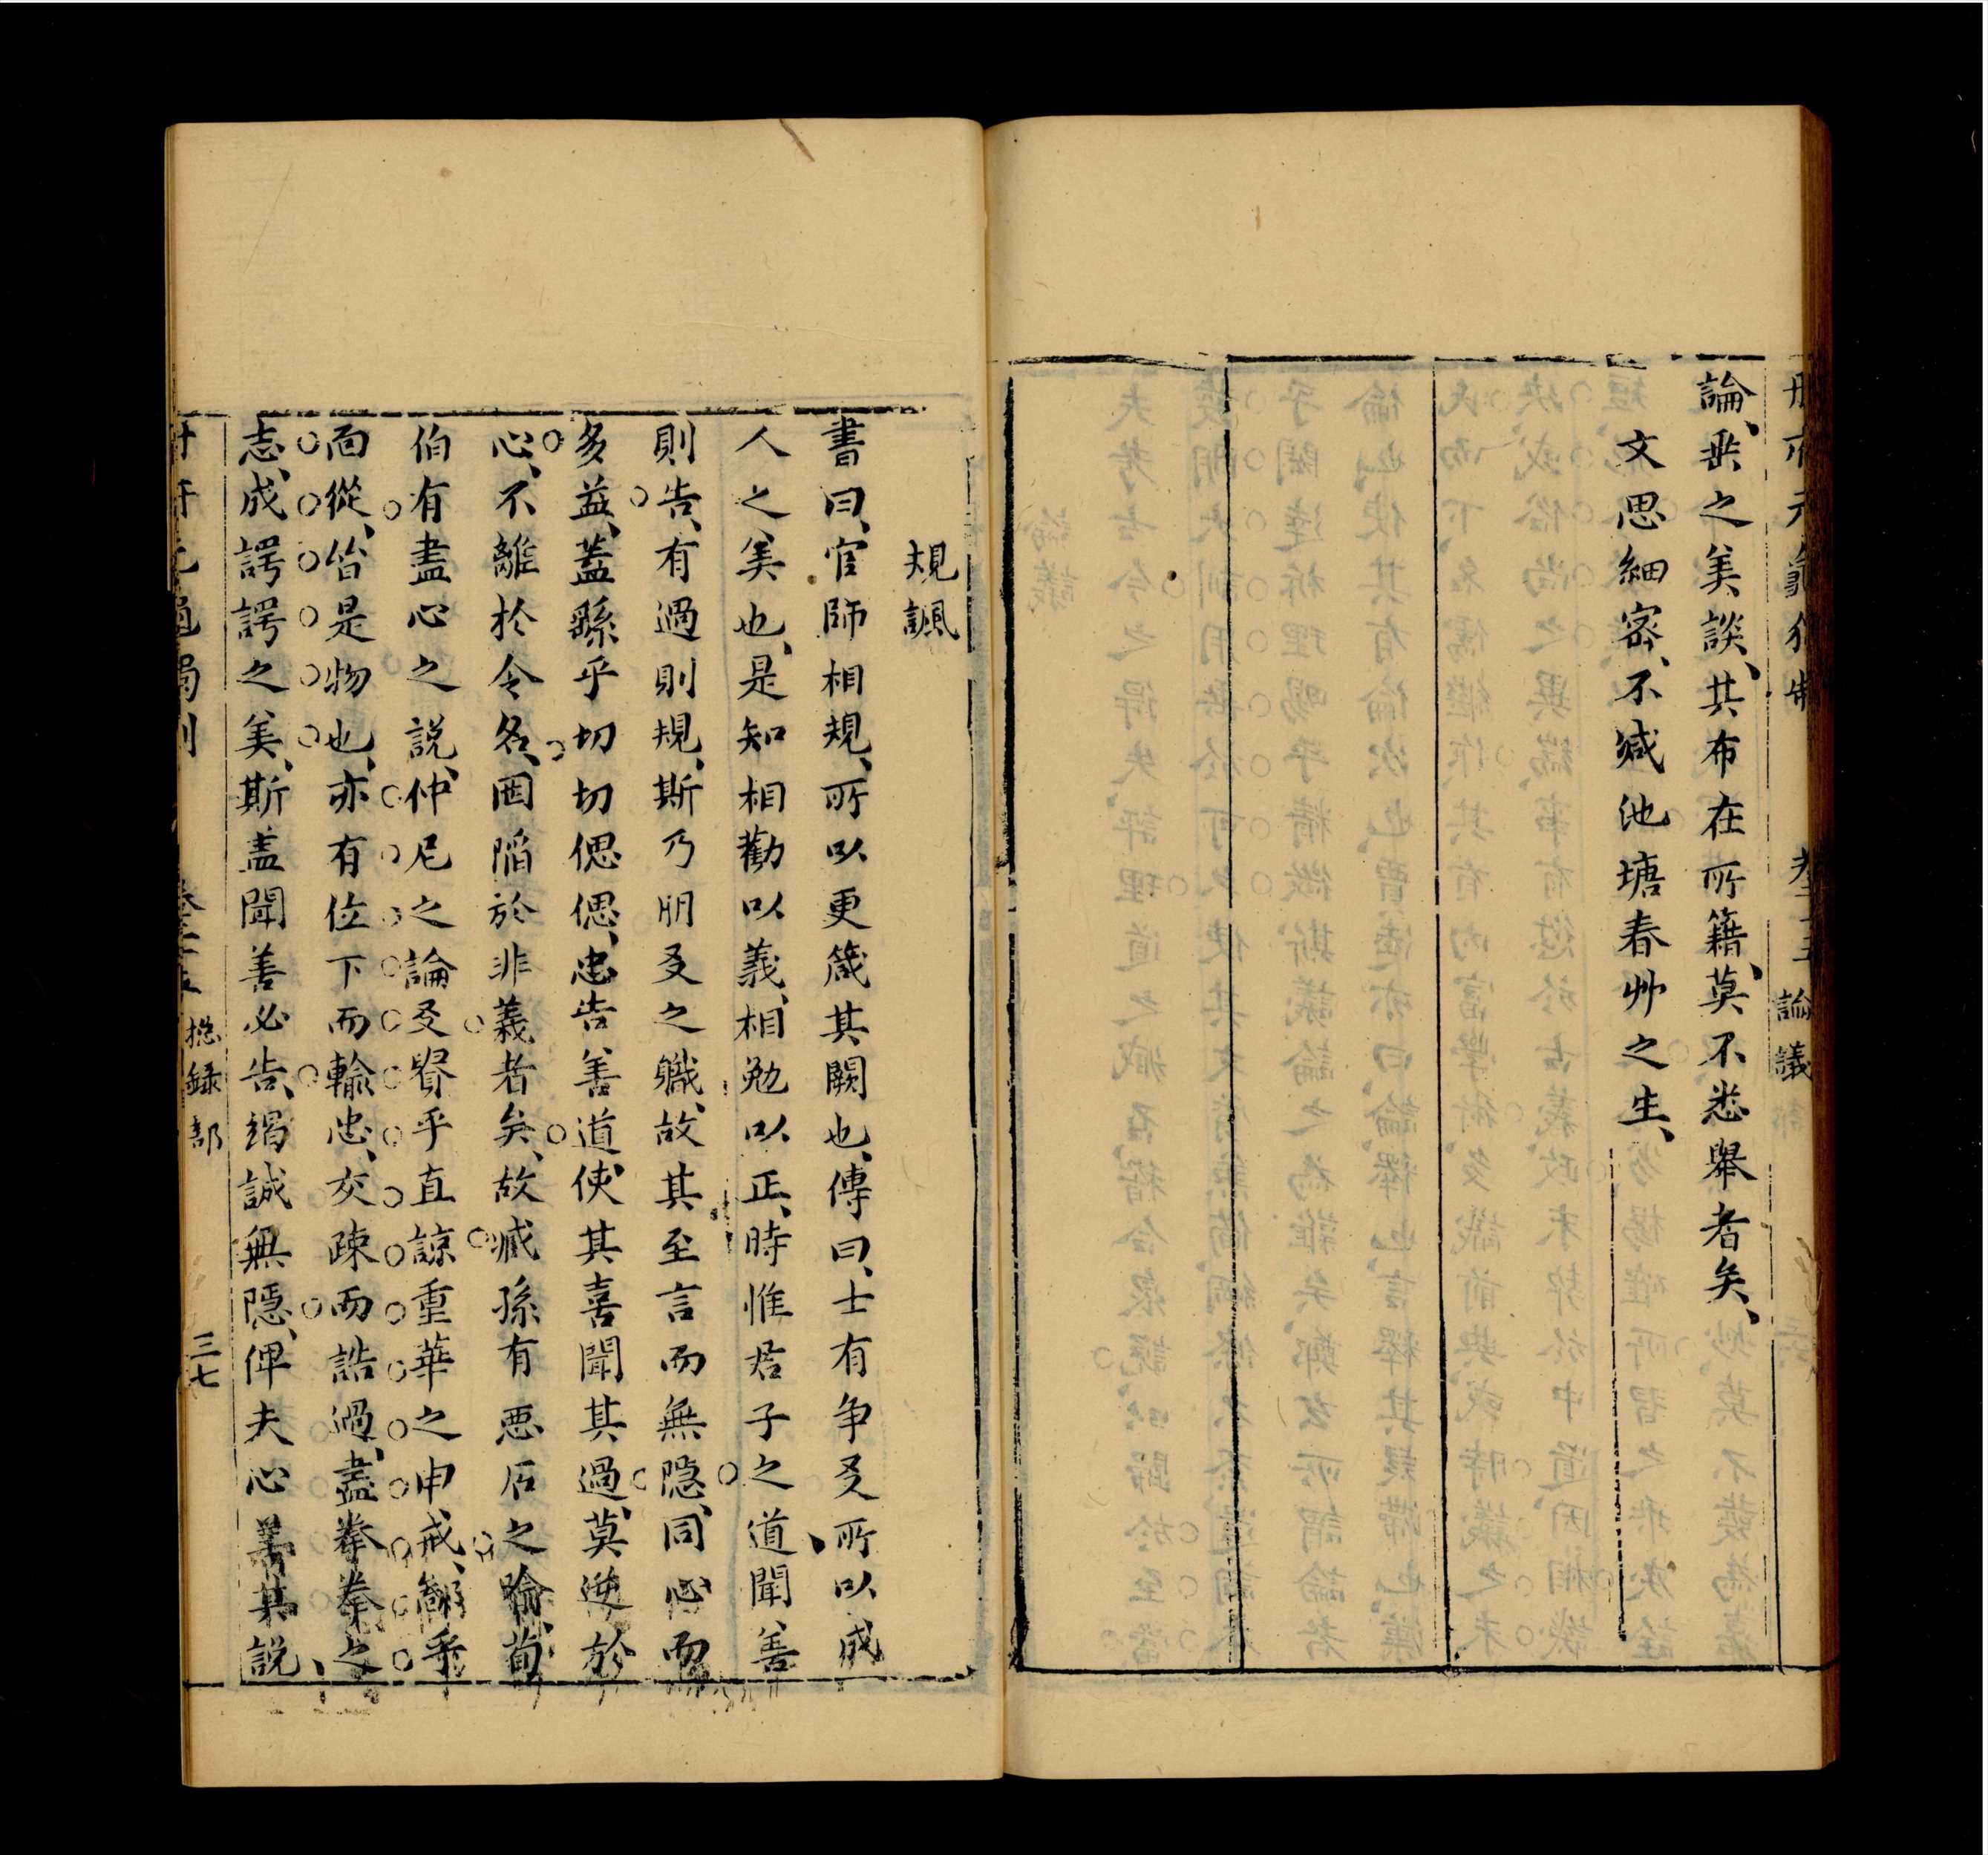 論議
論、垂之美談、其布在所籍、莫不悉舉者矣、
文思細密、不減池塘春艸之生、
規諷
書曰、官師相規、所以更箴其闕也、傳曰、士有争友、所以成
人之美也、是知相勸以義、相勉以正、時惟君子之道聞、善
則告、有過則規、斯乃朋友之職、故其至言而無隐、同心而
多益、蓋繇乎切切偲偲、忠告善道、使其喜聞其過、莫逆於
心、不離於令名、罔陷於非義者矣、故臧孫有惡石之喻、荀
伯有盡心之説、仲尼之論友賢乎直諒重華之申戒、鄙乎
面從、皆是物也、亦有位下而輸忠、交疎而誥過、盡拳拳之
志、成諤諤之美、斯盖聞善必告、竭誠無隱、俾夫心善其説、
捴録部
三七